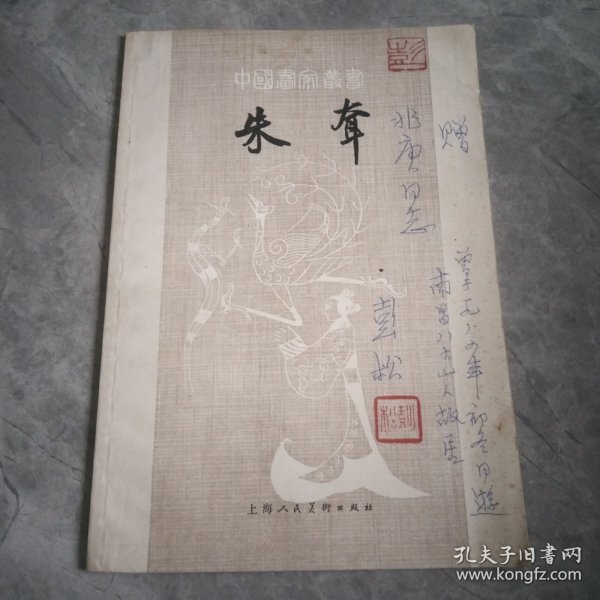 中國畫家叢書
朱耷
赠
兆庚同志
曾于一九八四年初冬同遊
南昌八大山人故居
彭松
上海人民美術出版社
孔夫子旧书网
www.kongfz.com